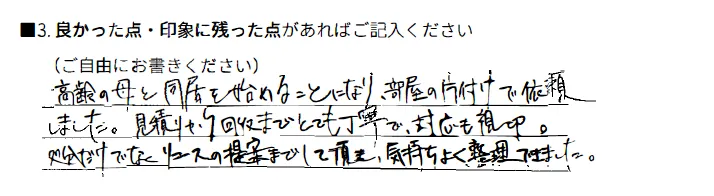 ■3. 良かった点・印象に残った点があればご記入ください
（ご自由にお書きください）
高齢の母と同居を始めることになり、部屋の片付けで依頼
しました。見積りから回収までとても丁寧で、対応も親切。
処分だけでなくリユースの提案までして頂き、気持ちよく整理できました。